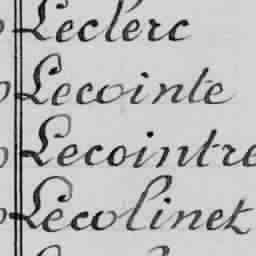 Leclerc
Lecointe
Lecointre
Lecolinet